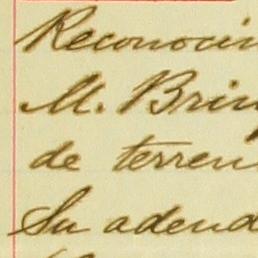 Reconocim
M. Brin
de terren
Su adeud